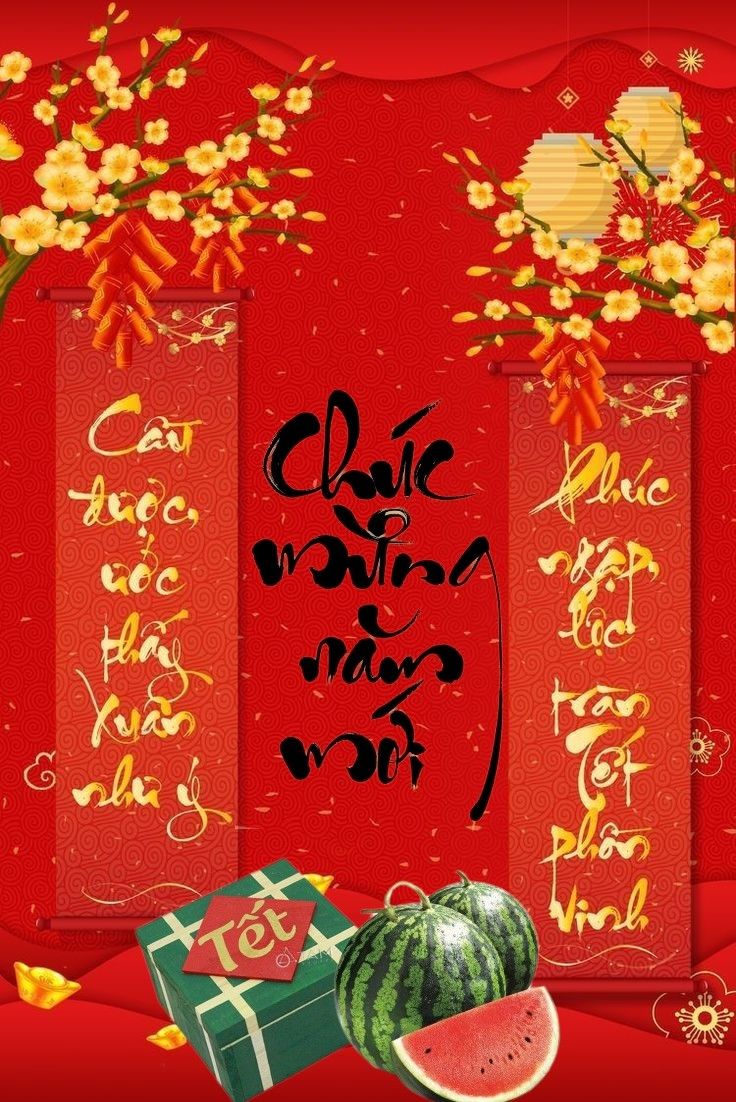 Cầu
được,
ước
thấy
Xuân
như ý
Chúc
mừng
năm
mới
Phúc
ngập,
lộc
tràn
Tết
phồn
Vinh
Tết